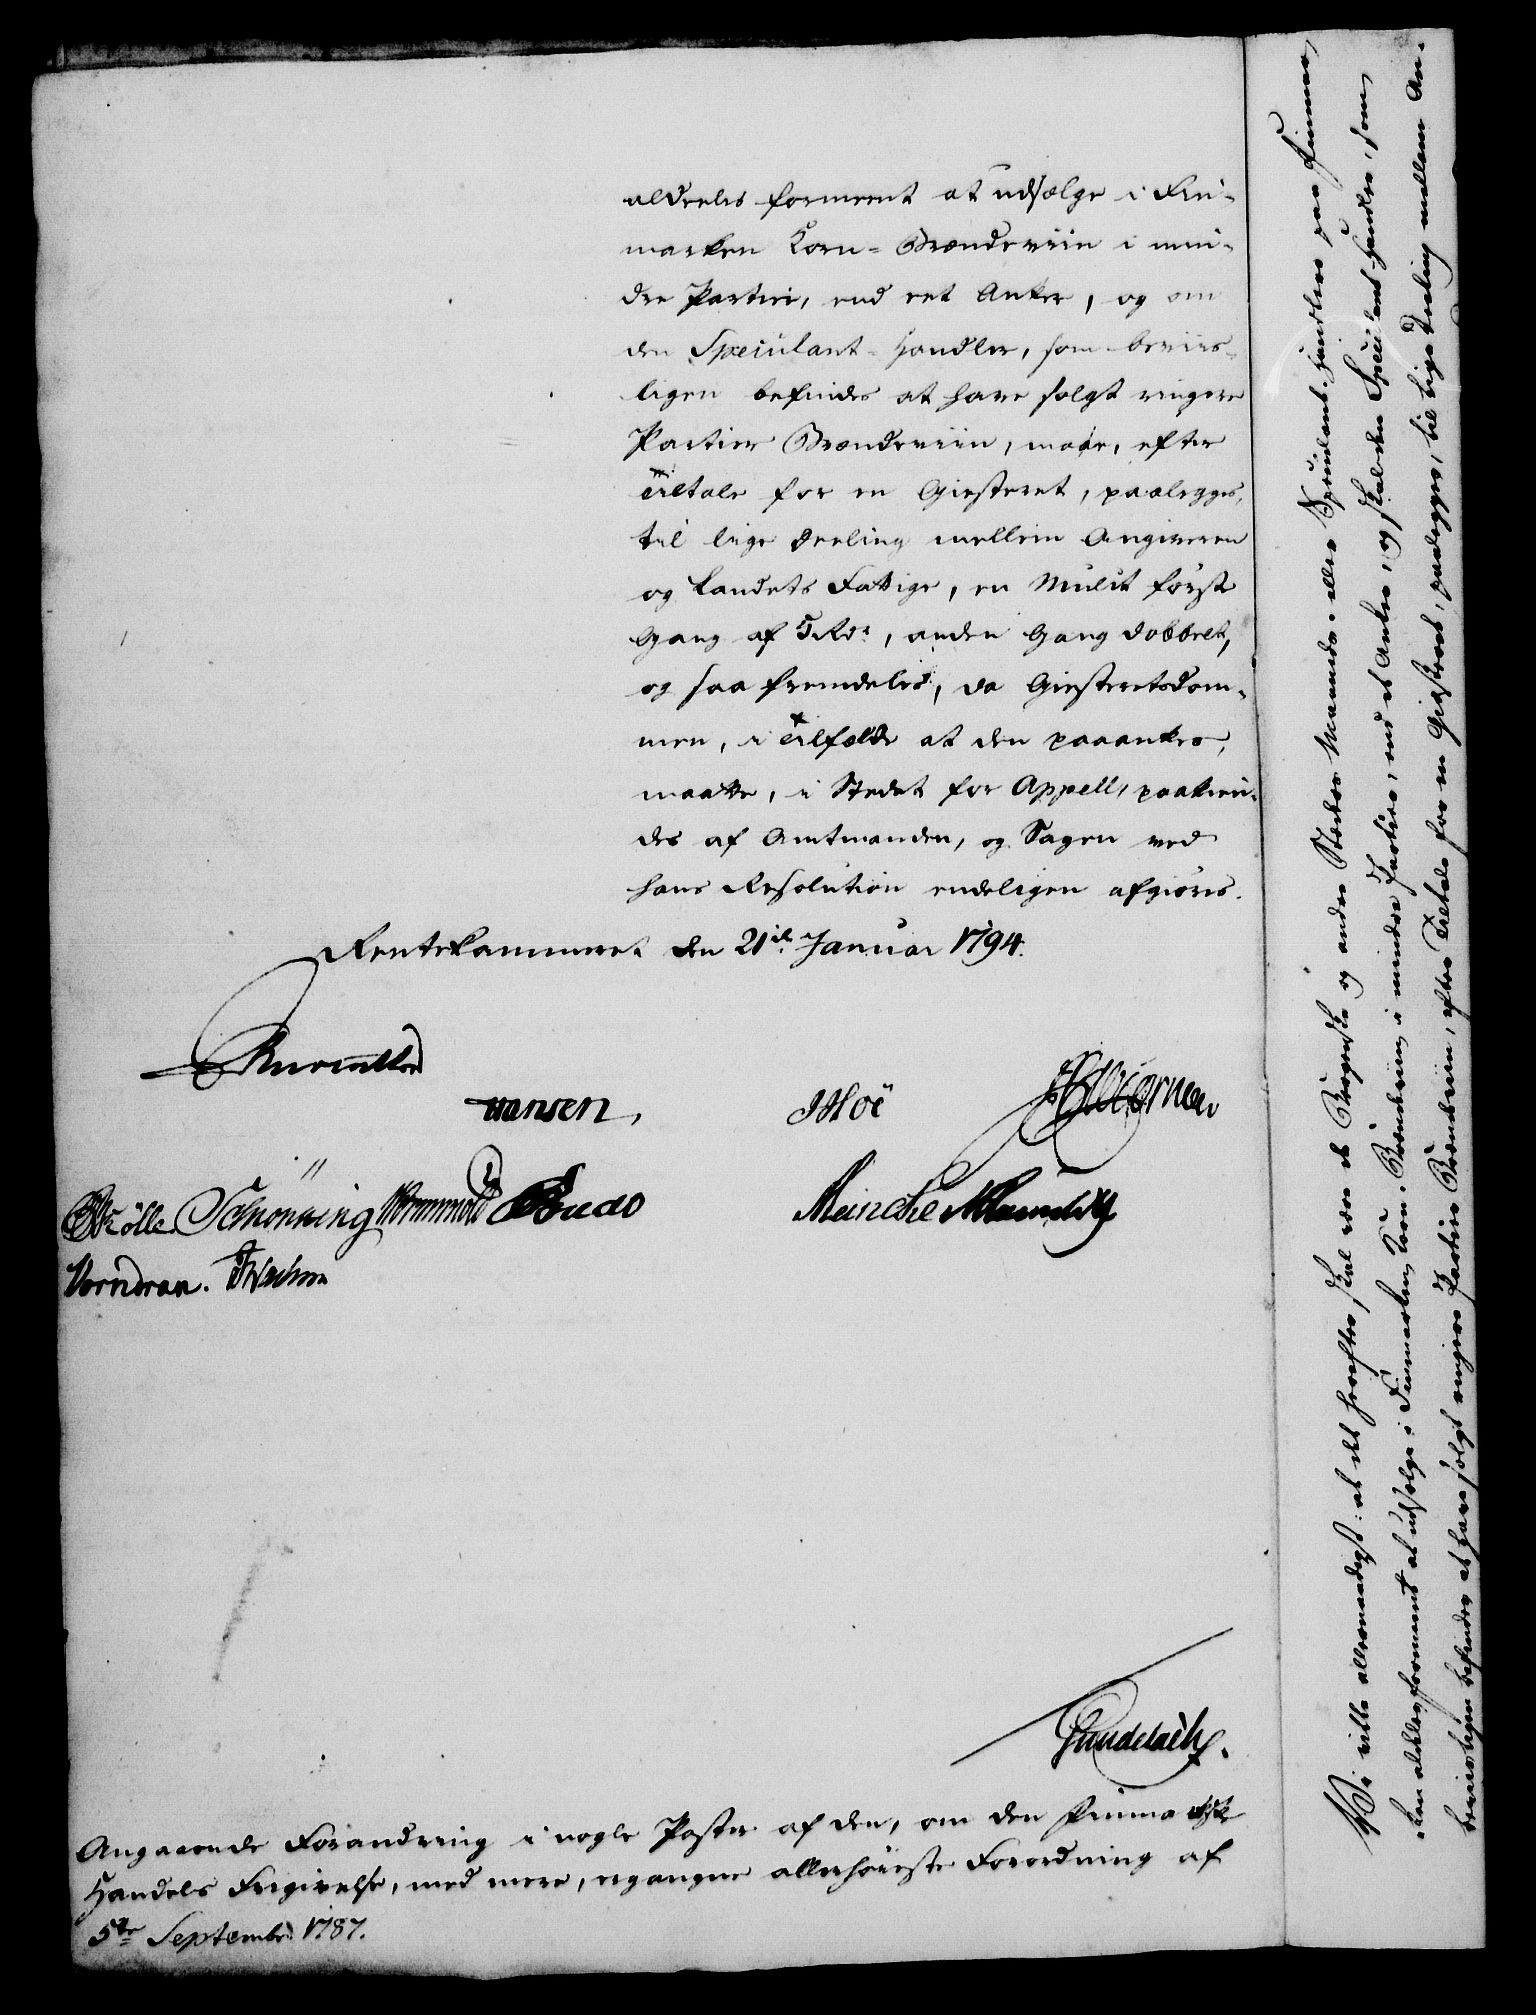 aldeeles formeent at udsælge i Fin-
marken Korn-Brændeviin i min-
dre Partier, end eet Anker, og om
den Speculant-Handler, som beviis-
ligen befindes at have solgt ringere
Partier Brændeviin, maae, efter
Tiltale for en Giesteret, paalegges,
til lige Deeling mellem Angiveren
og Landets Fattige, en Mulct første
Gang af 5 Rdr, anden Gang dobbelt,
og saa fremdeles, da Giesteretsdom-
men, i Tilfælde at den paaankes,
maatte, i Stedet for Appell, paakien-
des af Amtmanden, og Sagen ved
hans Resolution endeligen afgiøres.
Rentekammeret den 21de Januar 1794.
Hansen,
Møller Schønning Wormskiold
Meincke
Vorndran.
Gundelach.
Angaaende Forandring i nogle Poster af den, om den Finmarkske
Handels Frigivelse, med mere, ergangne allerhøieste Forordning af
5te Septembr: 1787.
Vi ville allernaadigst: at det herefter skal være de Borgerlige og andre Stæder Maaende, eller Speculant-Handlere paa Finmar-
ken aldeles formeent at udsælge i Finmarken Korn-Brændeviin i mindre Partier, end et Anker, og skal den Speculant-Handler, som
beviisligen befindes at have solgt ringere Partier Brændeviin, efter Tiltale for en Giesteret, paalegges, til lige Deeling mellem An-